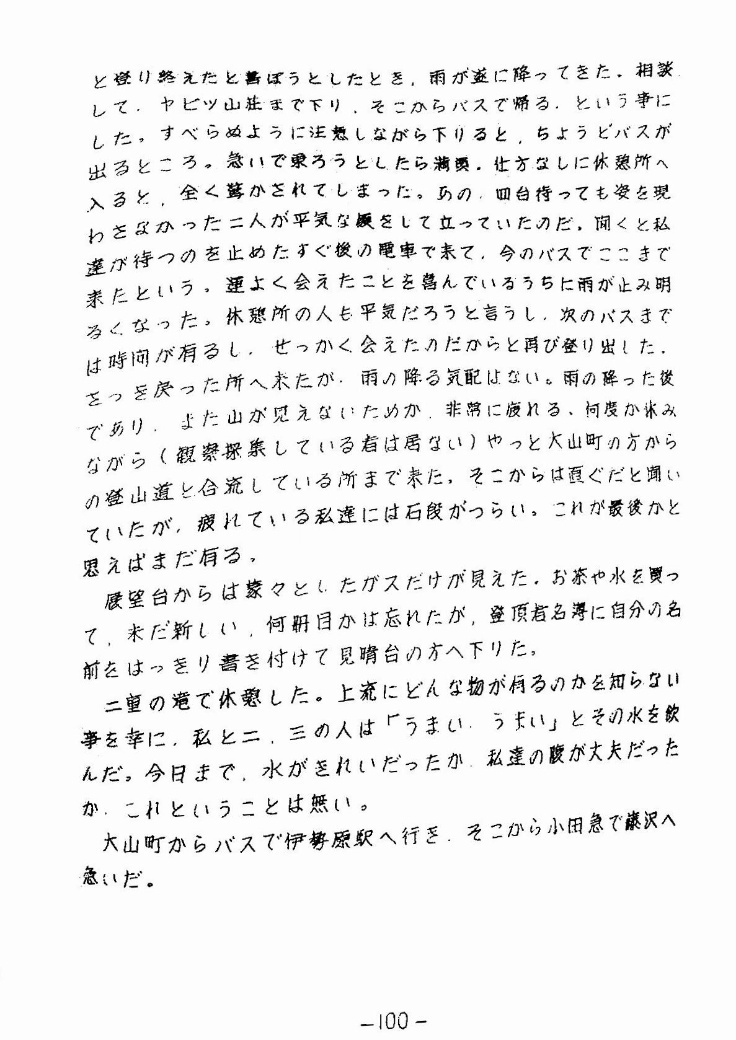 と登り終えたと喜ぼうとしたとき，雨が遂に降ってきた。相談
して，ヤビツ山荘まで下り，そこからバスで帰る，という事に
した。すべらぬように注意しながら下りると，ちょうどバスが
出るところ。急いで乗ろうとしたら満員。仕方なしに休憩所へ
入ると，全く驚かされてしまった。あの，四台待っても姿を現
わさなかった二人が平気な顔をして立っていたのだ。聞くと私
達が待つのを止めたすぐ後の電車で来て，今のバスでここまで
来たという。運よく会えたことを喜んでいるうちに雨が止み明
るくなった。休憩所の人も平気だろうと言うし，次のバスまで
は時間が有るし，せっかく会えたのだからと再び登り出した。
さっき戻った所へ来たが，雨の降る気配はない。雨の降った後
であり，また山が見えないためか，非常に疲れる。何度か休み
ながら（観察採集している者は居ない）やっと大山町の方から
の登山道と合流している所まで来た。そこからは直ぐだと聞い
ていたが，疲れている私達には石段がつらい。これが最後かと
思えばまだ有る。
展望台からは濛々としたガスだけが見えた。お茶や水を買っ
て，未だ新しい，何冊目かは忘れたが，登頂者名簿に自分の名
前をはっきり書き付けて見晴台の方へ下りた。
二重の滝で休憩した。上流にどんな物が有るのかを知らない
事を幸に，私と二，三の人は「うまい，うまい」とその水を飲
んだ。今日まで，水がきれいだったか，私達の腹が丈夫だった
か，これということは無い。
大山町からバスで伊勢原駅へ行き，そこから小田急で藤沢へ
急いだ。
-100-